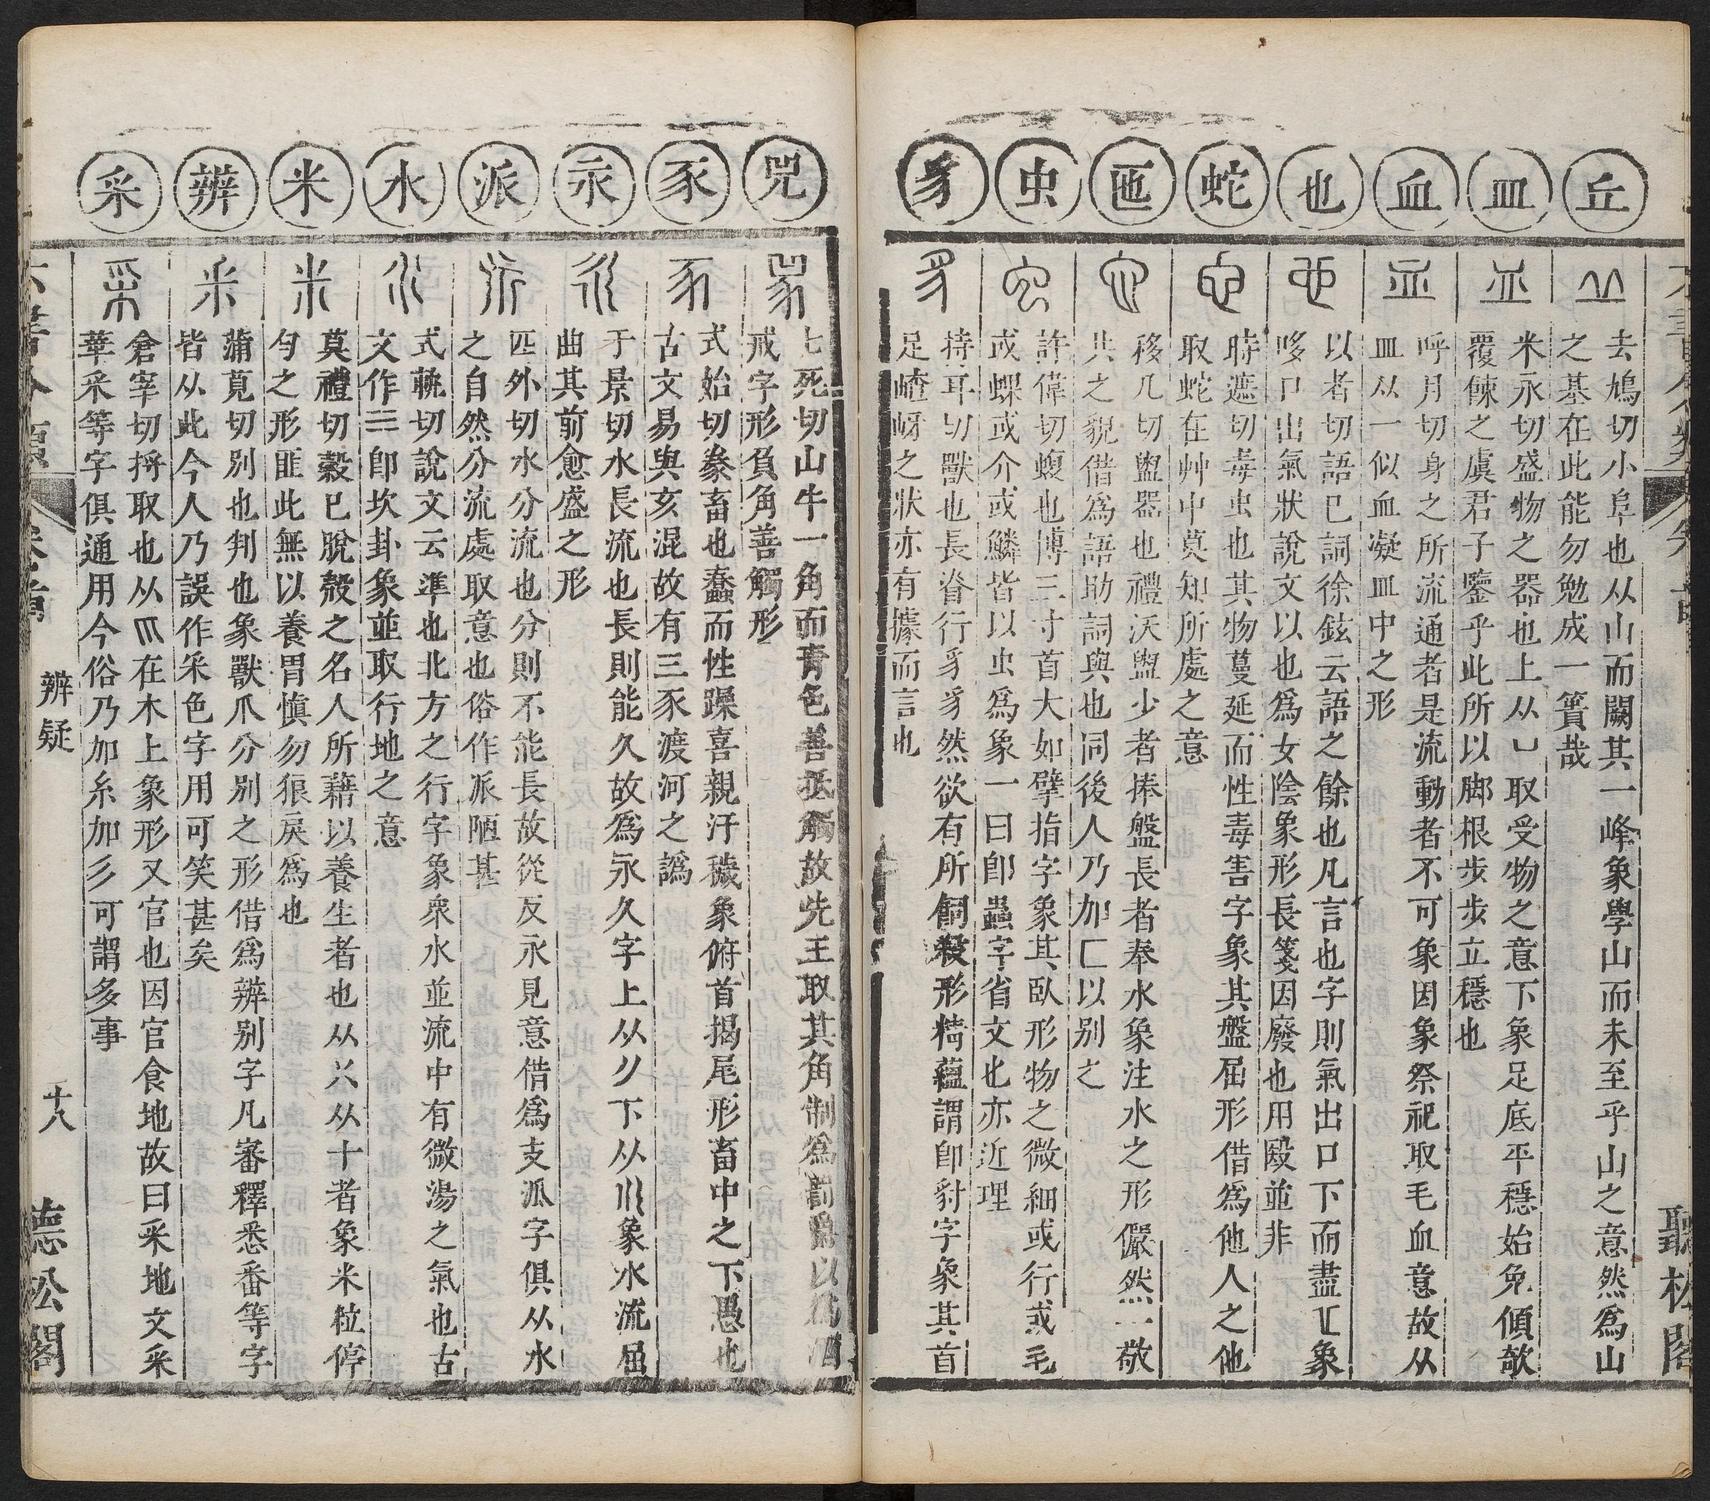 丘
去鳩切小阜也从山而闕其一峰象學山而未至乎山之意然爲山
之基在此能勿勉成一簣哉
皿
米永切盛物之器也上从凵取受物之意下象足底平穩始免傾欹
覆餗之虞君子鑒乎此所以脚根步步立穩也
血
呼月切身之所流通者是流動者不可象因象祭祀取毛血意故从
皿从一似血凝皿中之形
也
以者切語巳詞徐鉉云語之餘也凡言也字則氣出口下而盡象
哆口出氣狀說文以也爲女陰象形長箋因廢也用殹並非
蛇
時遮切毒虫也其物蔓延而性毒害字象其盤屈形借爲他人之他
取蛇在艸中莫知所處之意
匜
移几切盥器也禮沃盥少者捧盤長者奉水象注水之形儼然一敬
共之貌借爲語助詞與也同後人乃加匚以别之
虫
許偉切蝮也博三寸首大如擘指字象其臥形物之微細或行或毛
或蠃或介或鱗皆以虫爲象一曰卽蟲字省文也亦近理
豸
持耳切獸也長脊行豸豸然欲有所伺殺形精蘊謂卽豺字象其首
足嵖岈之狀亦有據而言也
兕
七死切山牛一角而靑色善抵觸故先王取其角制爲觥爵以爲酒
戒字形負角善觸形
豕
式始切豢畜也蠢而性躁喜親汙穢象俯首揭尾形畜中之下愚也
古文易與亥混故有三豕渡河之譌
永
于景切水長流也長則能久故爲永久字上从下从象水流屈
曲其前愈盛之形
派
匹外切水分流也分則不能長故從反永見意借爲支派字俱从水
之自然分流處取意也俗作派陋甚
水
式軌切說文云準也北方之行字象衆水並流中有微湯之氣也古
文作卽坎卦象並取行地之意
米
莫禮切榖巳脫殼之名人所藉以養生者也从从十者象米粒停
勻之形匪此無以養胃愼勿狼戾爲也
辨
蒲莧切别也判也象獸爪分别之形借爲辨别字凡審釋悉番等字
皆从此今人乃誤作采色字用可笑甚矣
采
倉宰切捋取也从爪在木上象形又官也因官食地故曰采地文采
華采等字俱通用今俗乃加糸加彡可謂多事
卷首
辨疑
十八
聽松閣